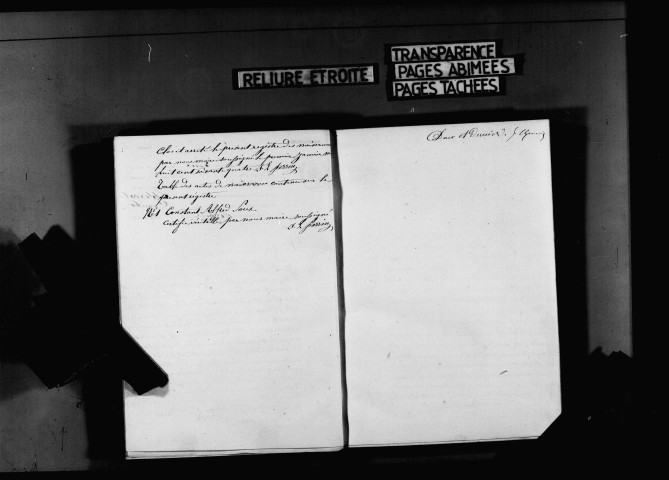 RELIURE ETROITE
TRANSPARENCE
PAGES ABIMEES
PAGES TACHEES
Clos et arreté le présent registre des naissances
par nous maire soussigné le premier janvier mil
huit cent soixante quatre
Table des actes de naissances contenu sur le
présent registre
N° 1 Constant Alfred
certifié véritable par nous maire soussigné
Deux et dernier